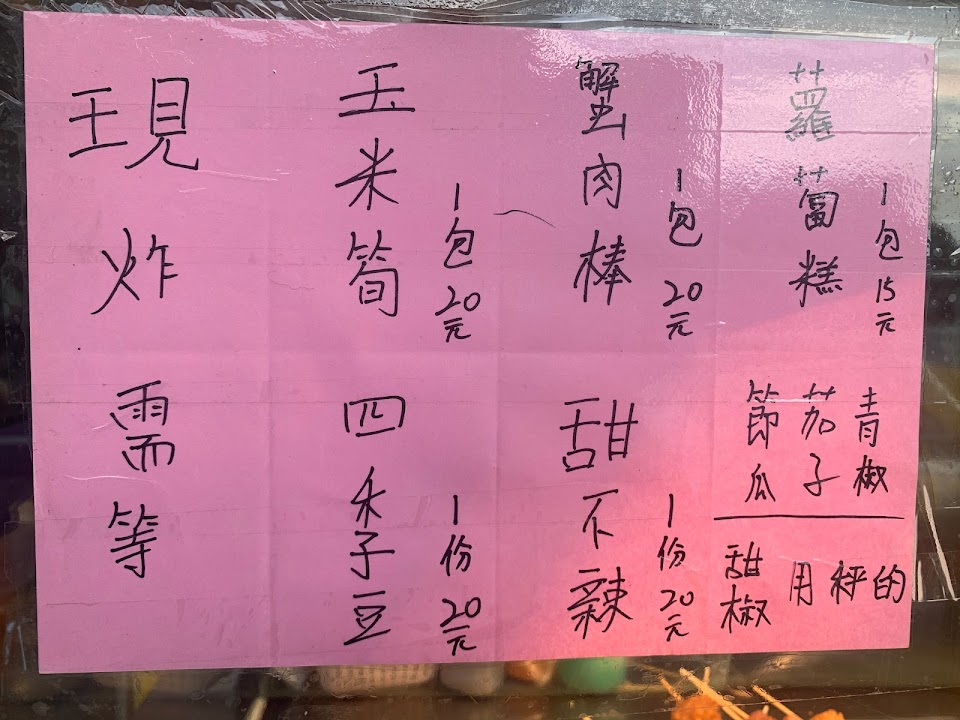 蘿蔔糕
1包15元
青椒
茄子
節瓜
用秤的
甜椒
蟹肉棒
1包20元
甜不辣
1份20元
玉米筍
1包20元
四季豆
1份20元
現炸需等